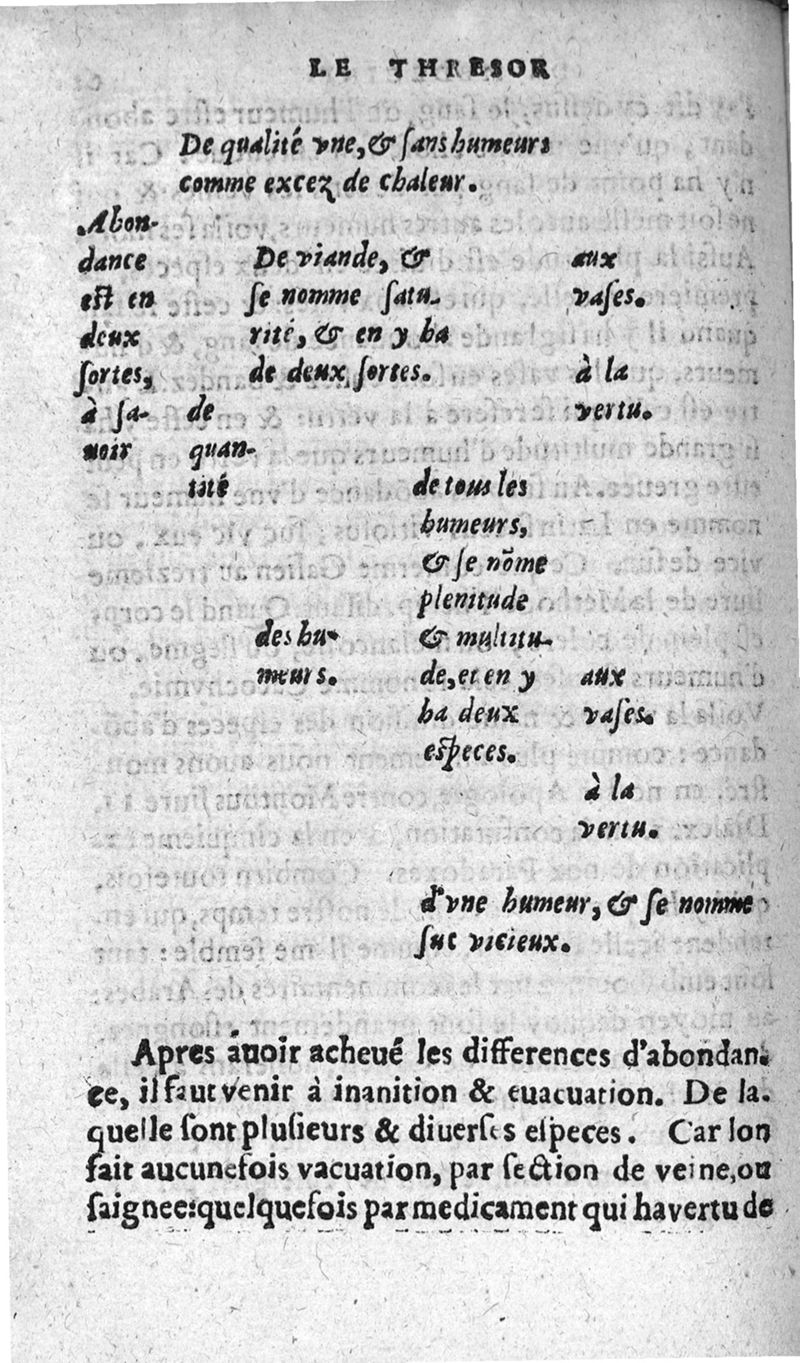 LE THRESOR
De qualité vne, & ſans humeurs
comme excez de chaleur.
Abon-
dance
eſt en
deux
ſortes,
à ſa-
uoir
de
quan-
tité
De viande, &
ſe nomme ſatu-
rité, & en y ha
de deux ſortes.
aux
vaſes.
à la
vertu.
des hu-
meurs.
de tous les
humeurs,
& ſe nõme
plenitude
& multitu-
de, et en y
ha deux
eſpeces.
aux
vaſes.
à la
vertu.
d'vne humeur, & ſe nomme
ſuc vicieux.
Apres auoir acheué les differences d'abondan-
ce, il faut venir à inanition & euacuation. De la-
quelle ſont pluſieurs & diuerſes eſpeces. Car lon
fait aucunefois vacuation, par ſection de veine, ou
ſaignee: quelquefois par medicament qui ha vertu de